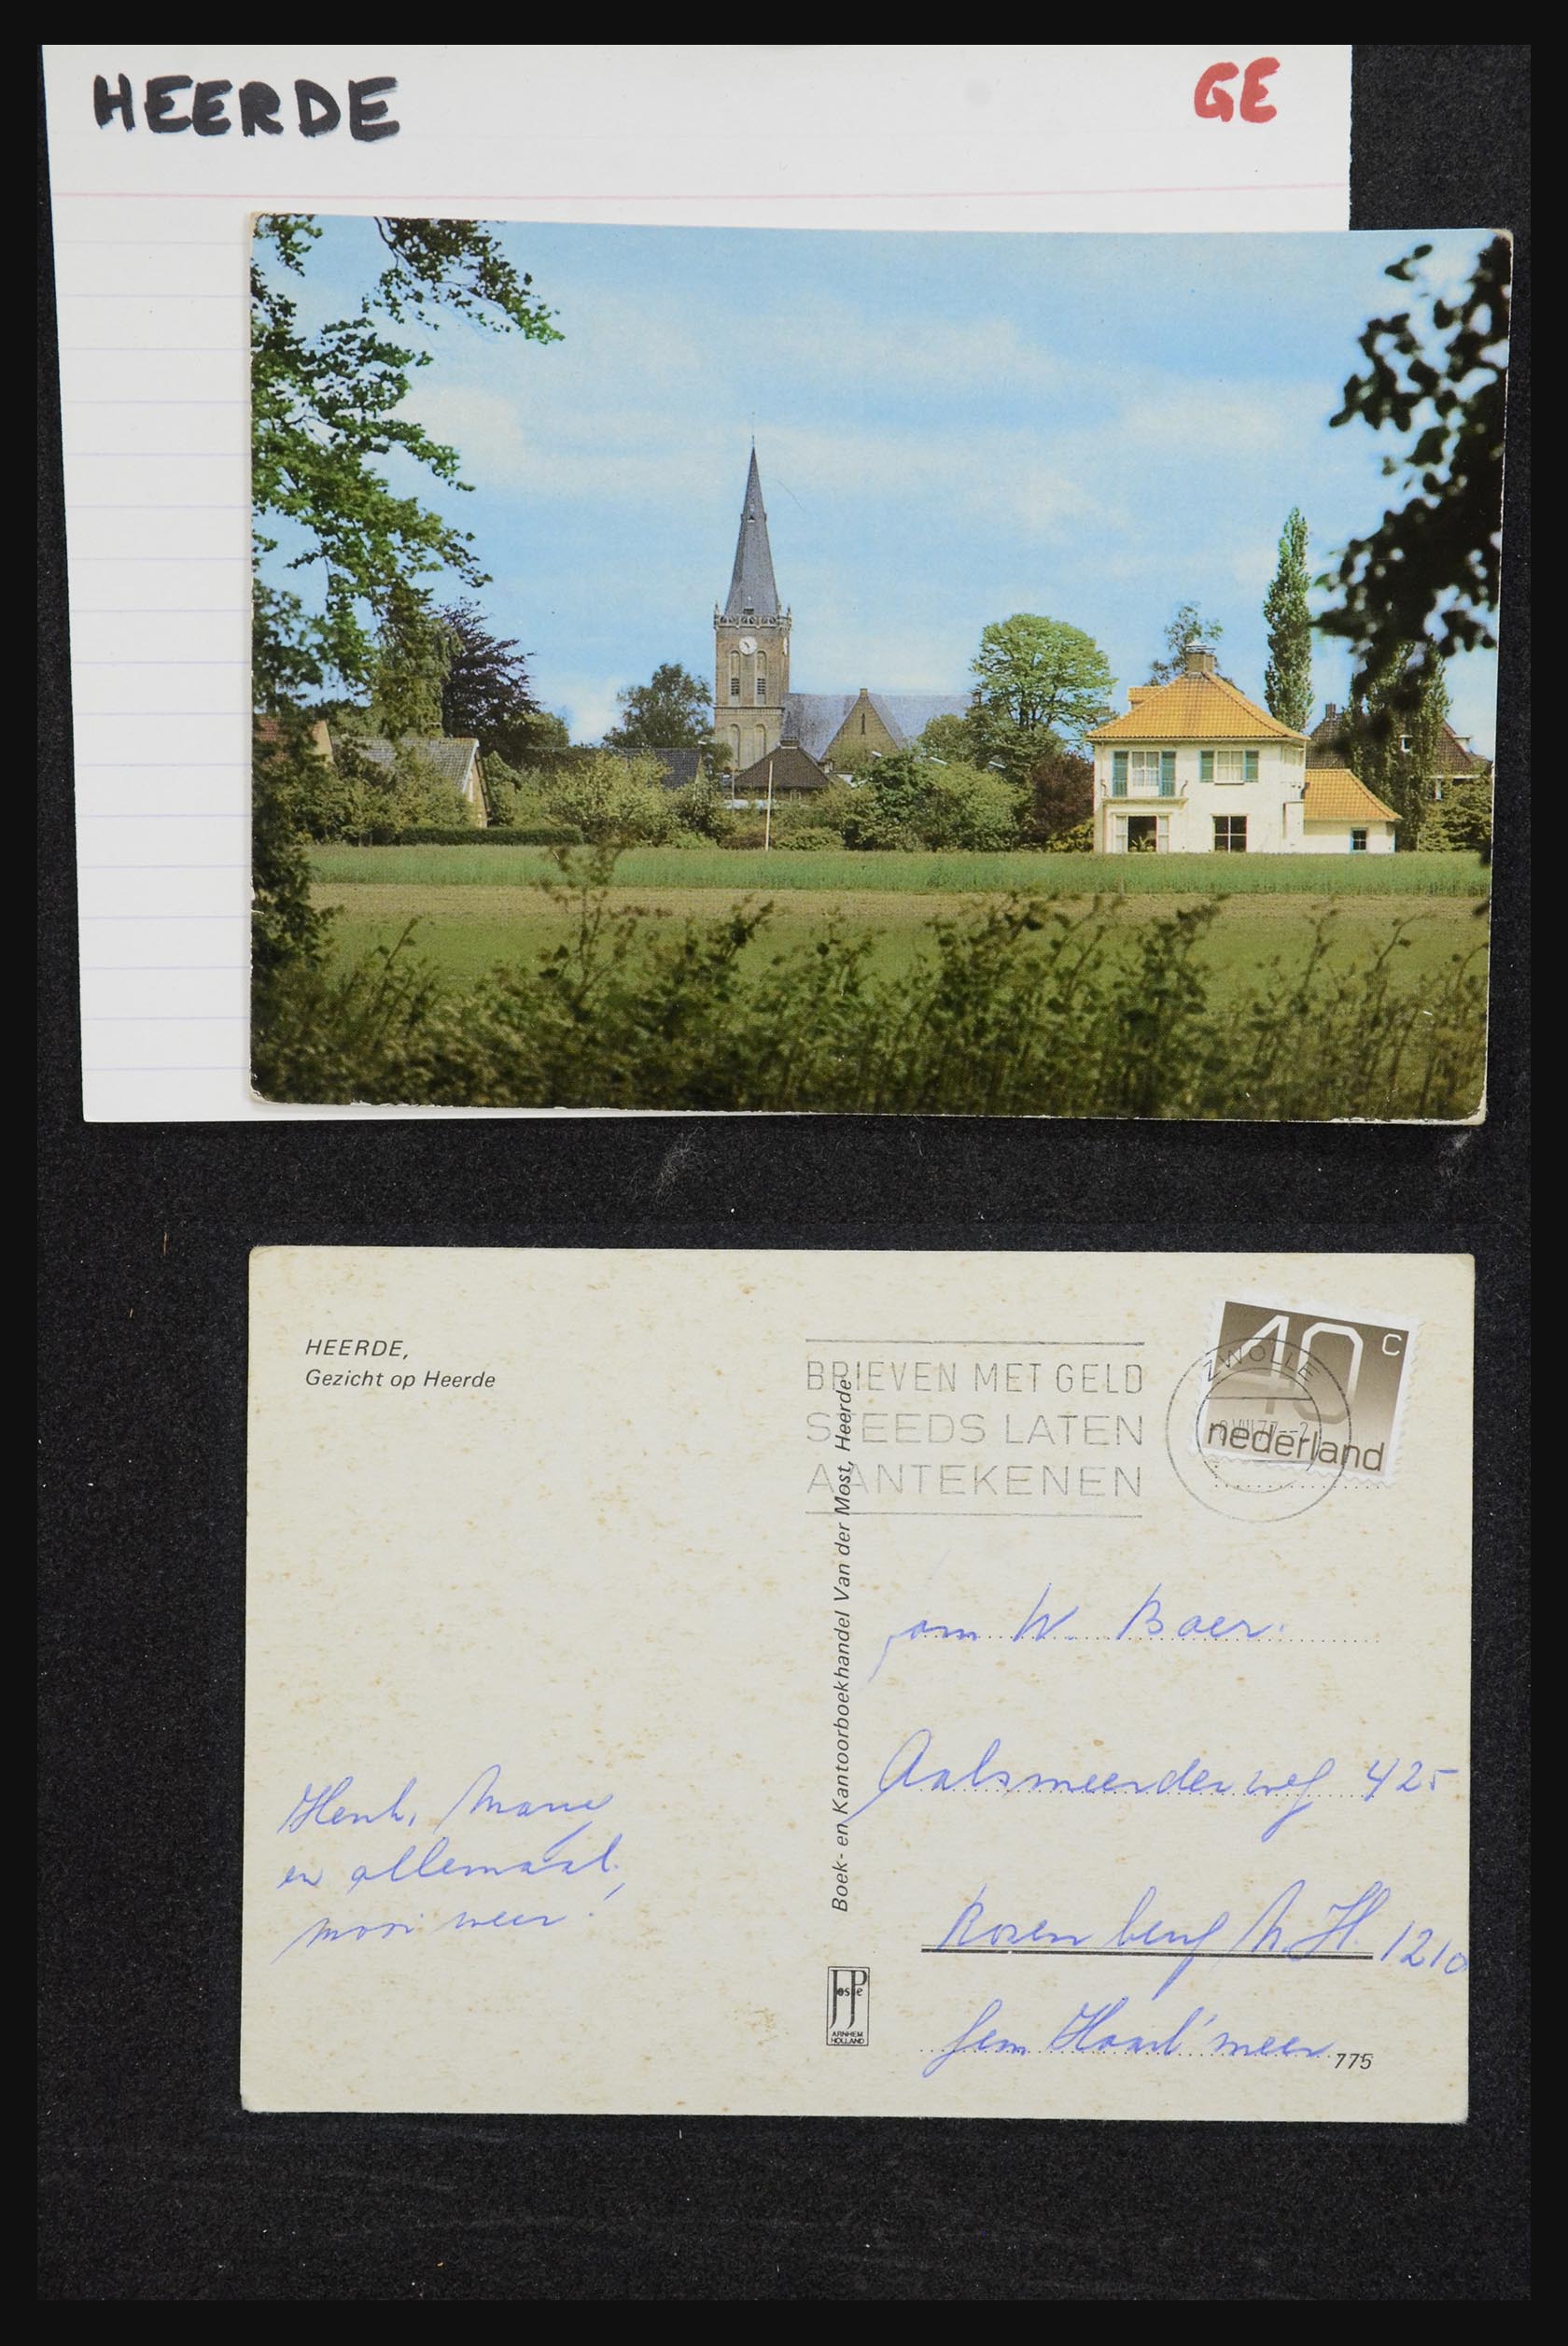 HEERDE
GE
HEERDE,
Gezicht op Heerde
BRIEVEN MET GELD
STEEDS LATEN
AANTEKENEN
ZWOLLE
40 c
nederland
Boek- en Kantoorboekhandel Van der Most, Heerde
fam W. Baer.
Aalsmeerderweg 425
Rozenburg N.H. 1210
gem Haarl'meer
Henk, Marie
en allemaal.
mooi weer!
JosPe
ARNHEM
HOLLAND
775